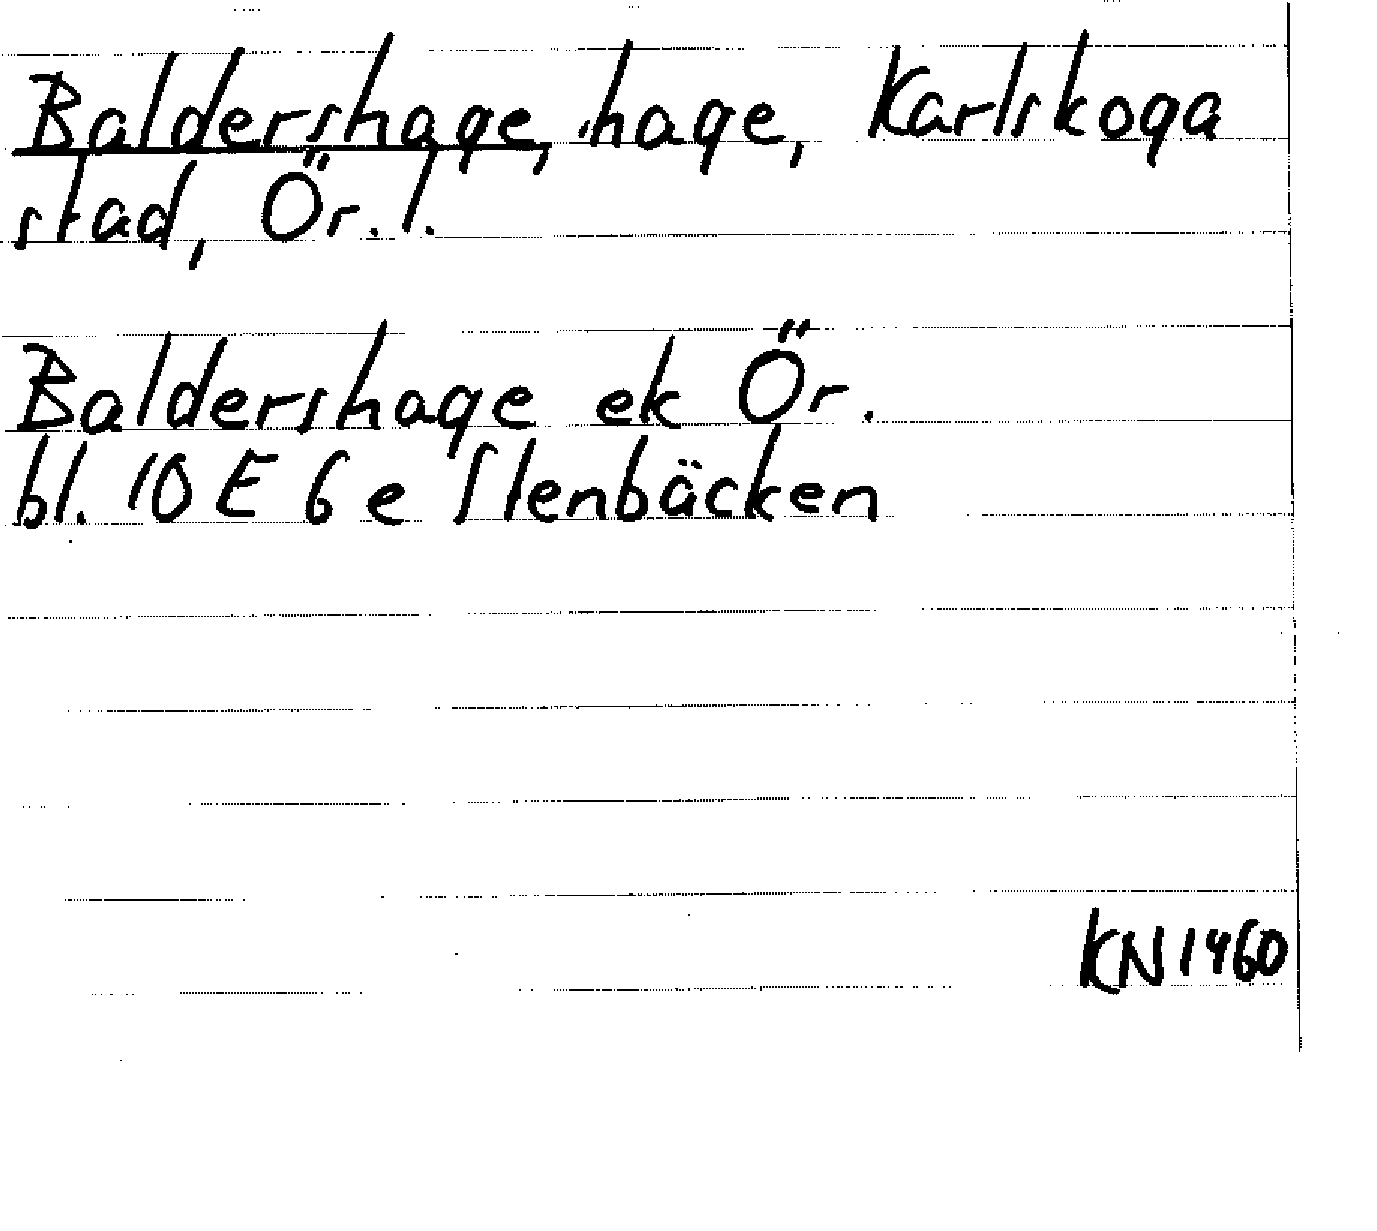 Baldershage, hage, Karlskoga
stad, Ör. l.
Baldershage ek Ör.
bl. 10 E 6 e Stenbäcken
KN 1460